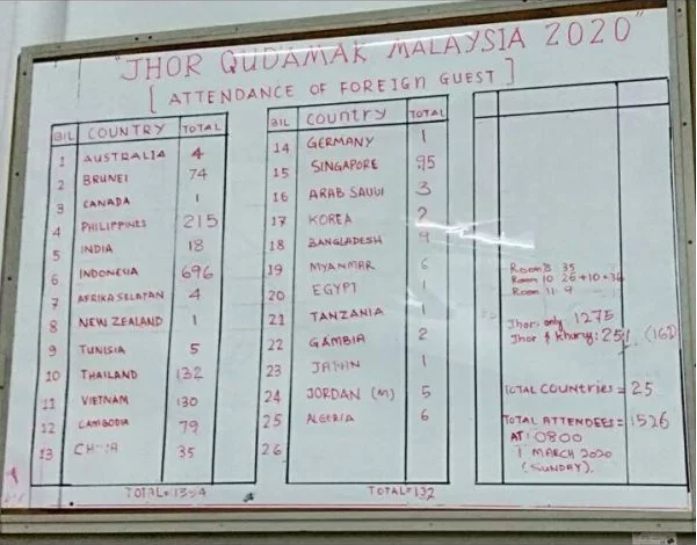 "JHOR QUDAMAK MALAYSIA 2020"
[ATTENDANCE OF FOREIGN GUEST]
BIL COUNTRY TOTAL
1 AUSTRALIA 4
2 BRUNEI 74
3 CANADA 1
4 PHILIPPINES 215
5 INDIA 18
6 INDONESIA 696
7 AFRIKA SELATAN 4
8 NEW ZEALAND 1
9 TUNISIA 5
10 THAILAND 132
11 VIETNAM 130
12 CAMBODIA 79
13 CHINA 35
TOTAL=1394
BIL COUNTRY TOTAL
14 GERMANY 1
15 SINGAPORE 95
16 ARAB SAUDI 3
17 KOREA 2
18 BANGLADESH 9
19 MYANMAR 6
20 EGYPT 1
21 TANZANIA 1
22 GAMBIA 2
23 1
24 JORDAN (M) 5
25 ALGERIA 6
26
TOTAL=132
Room 8 35
Room 10 26+10+
Room 11 9
Jhor only 1275
Jhor & khuruj: 251
TOTAL COUNTRIES = 25
TOTAL ATTENDEES = 1526
AT: 0800
1 MARCH 2020
(SUNDAY).